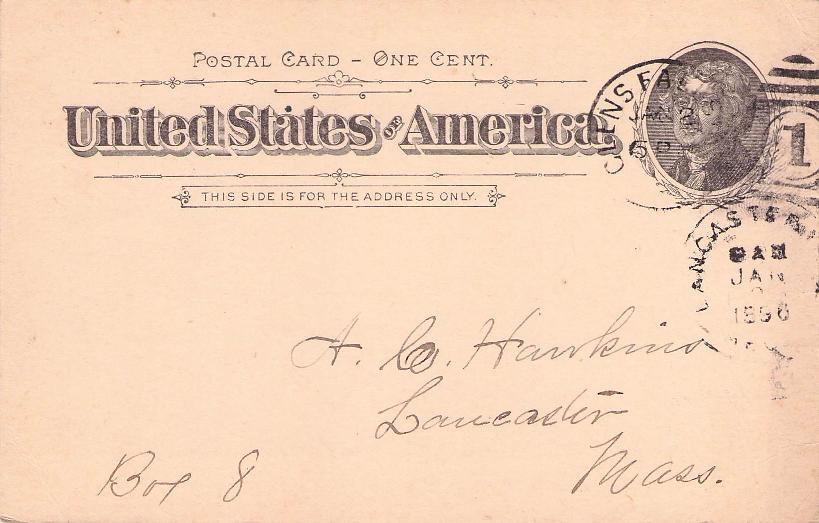 POSTAL CARD – ONE CENT.
United States OF America.
THIS SIDE IS FOR THE ADDRESS ONLY.
GLENS FA
JAN
5 P
1
LANCASTER
8 AM
JAN
1896
A. C. Hawkins
Lancaster
Mass.
Box 8